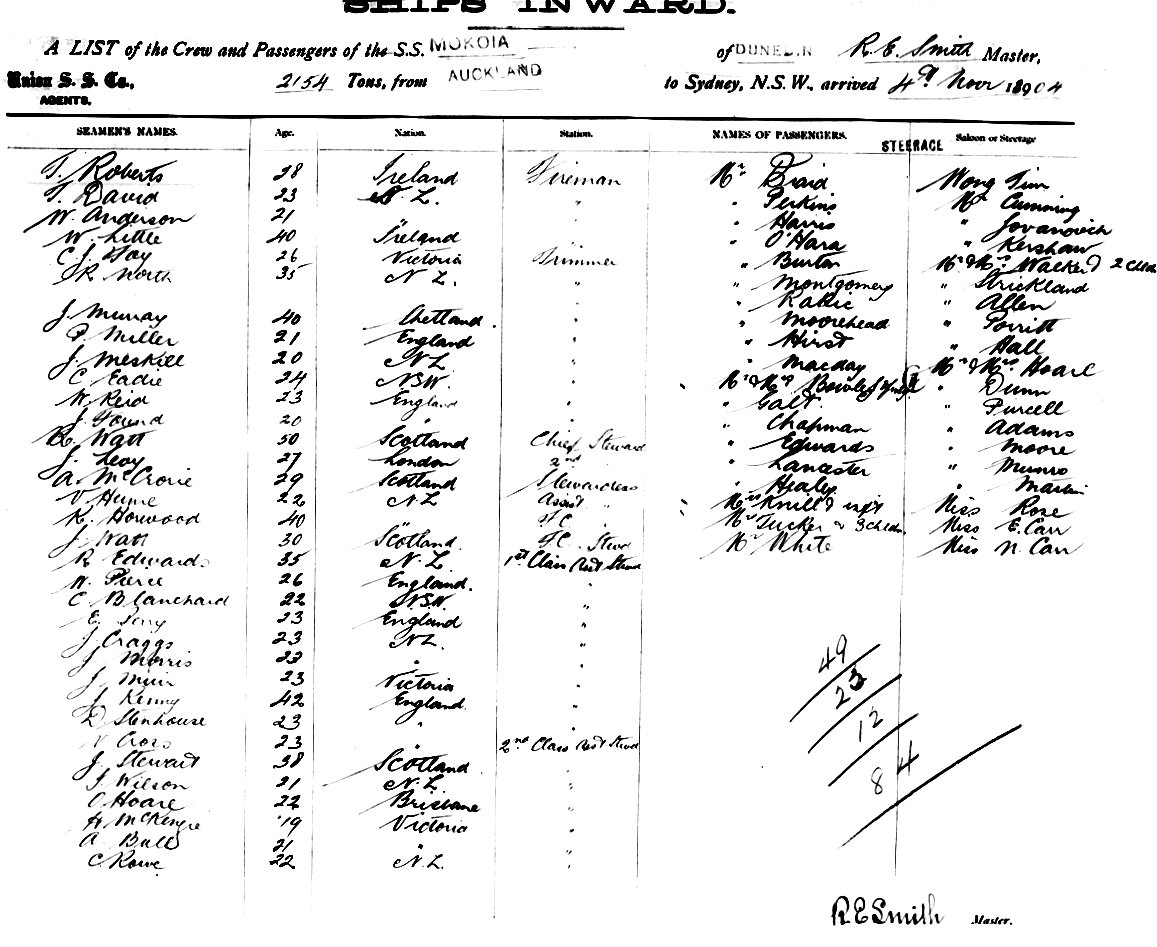 SHIPS INWARD.
A LIST of the Crew and Passengers of the S.S. MOKOIA of DUNEDIN R. E. Smith Master,
Union S. S. Co., AGENTS. 2154 Tons, from AUCKLAND to Sydney, N.S.W., arrived 4th Novr 1904
SEAMEN'S NAMES. Age. Nation. Station. NAMES OF PASSENGERS. STEERAGE Saloon or Steerage
T. Roberts 28 Ireland Fireman Mr Baird Wong Tim
T. David 23 N. Z. " " Perkins Mr Cumming
W. Anderson 21 " " Harris " Jovanovich
W. Little 40 Ireland " O'Hara " Kershaw
C. J. Gay 26 Victoria Trimmer " Burton Mr & Mrs Walker & 2 chldn
R North 35 N Z. " " Montgomery " Strickland
" Rakic " Allen
J. Murray 40 Shetland. " " Moorehead " Porritt
P. Miller 21 England " " Hirst " Hall
J. Meskill 20 N Z " " Macday Mr & Mrs Hoare
C. Eadie 24 NSW. " Mr & Mrs Bowles & " Dunn
W. Reid 23 England " " Galt " Purcell
J. Found 20 " " " Chapman " Adams
R. Watt 50 Scotland Chief Steward " Edwards " Moore
J. Levy 27 London 2nd " " Lancaster " Munro
A. McCrorie 29 Scotland Stewardess " Healy " Martin
V. Hume 22 N Z Assist " Mrs Knill & inft Miss Rose
K. Horwood 40 " F C. Mrs Tucker & 3 chldn. Miss E. Carr
J. Watt 30 Scotland. F C. Stwd Mr White Miss N. Carr
R Edwards 35 N. Z. 1st Class Bed Stwd
W. Pierce 26 England. "
C Blanchard 22 NSW. "
E. Perry 23 England "
J. Craggs 23 N Z. "
J. Morris 23 " "
J. Muir 23 Victoria "
J. Kenny 42 England. "
D Stenhouse 23 " "
N Cross 23 " 2nd Class Bed Stwd
J. Stewart 38 Scotland. "
J Wilson 21 N. Z. "
O Hoare 22 Brisbane "
H McKenzie 19 Victoria "
A. Bull 21 " "
C. Rowe 22 N. Z. "
49
23
12
84
R E Smith Master.